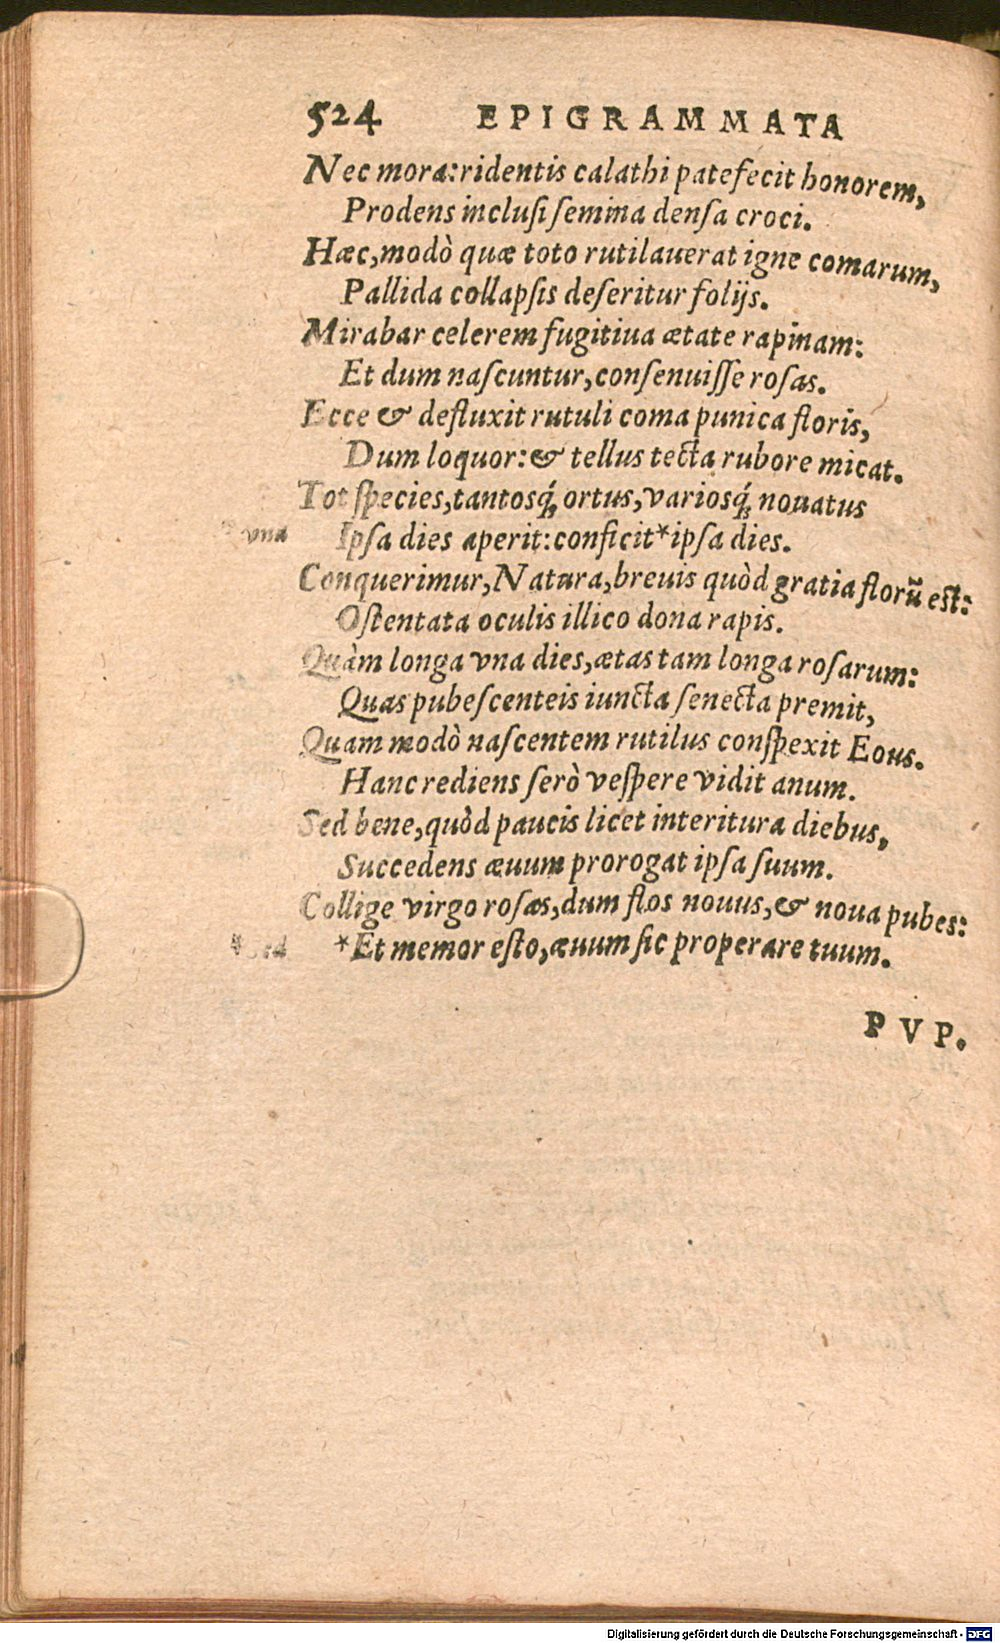 524 EPIGRAMMATA
Nec mora: ridentis calathi patefecit honorem,
Prodens inclusi semina densa croci.
Hæc, modò quæ toto rutilauerat igne comarum,
Pallida collapsis deseritur folijs.
Mirabar celerem fugitiua ætate rapinam:
Et dum nascuntur, consenuisse rosas.
Ecce & defluxit rutuli coma punica floris,
Dum loquor: & tellus tecta rubore micat.
Tot species, tantosq́; ortus, variosq́; nouatus
* vna Ipsa dies aperit: conficit * ipsa dies.
Conquerimur, Natura, breuis quòd gratia florū est:
Ostentata oculis illico dona rapis.
Quàm longa vna dies, ætas tam longa rosarum:
Quas pubescenteis iuncta senecta premit,
Quam modò nascentem rutilus conspexit Eous.
Hanc rediens serò vespere vidit anum.
Sed bene, quòd paucis licet interitura diebus,
Succedens æuum prorogat ipsa suum.
Collige virgo rosas, dum flos nouus, & noua pubes:
* Sed * Et memor esto, æuum sic properare tuum.
PVP.
Digitalisierung gefördert durch die Deutsche Forschungsgemeinschaft - DFG